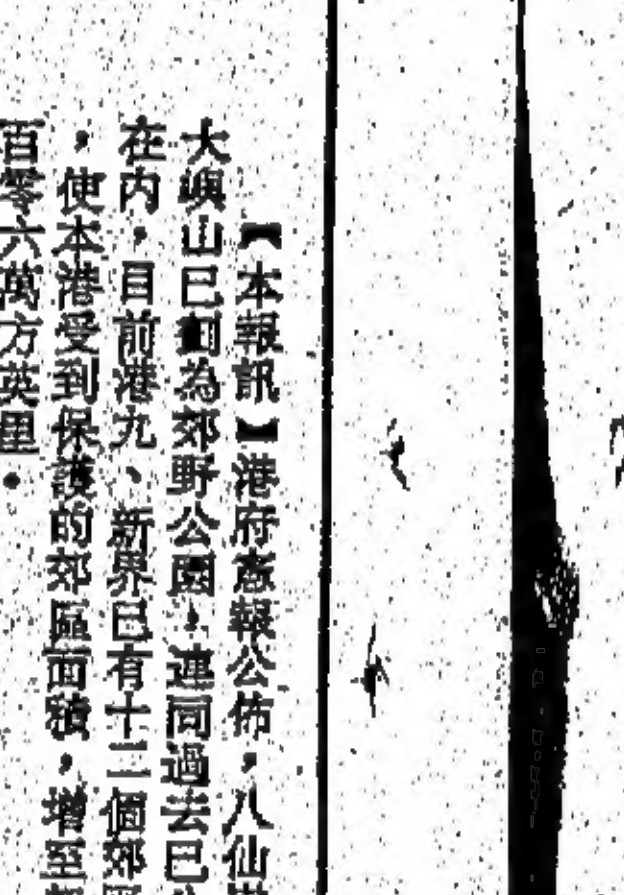 【本報訊】港府憲報公佈，八仙
大嶼山已劃為郊野公園，連同過去已
在內，目前港九、新界已有十二個郊
，使本港受到保護的郊區面積，增至
百零六萬方英里．